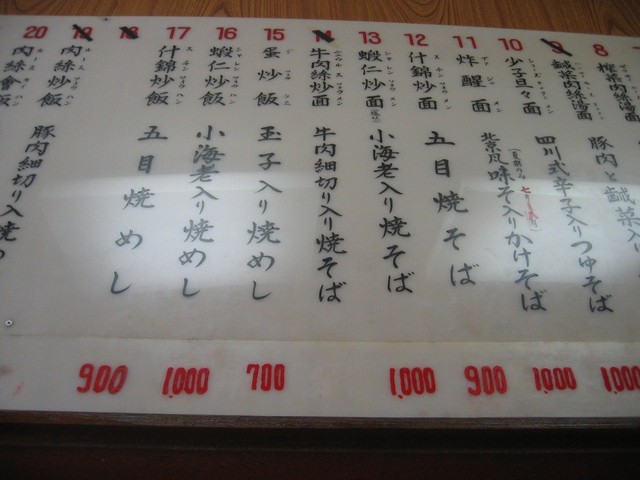 8
榨菜肉絲湯面
豚肉と鹹菜入り
1,000
9
鹹菜肉絲湯面
四川式辛子入りつゆそば
1,000
10
少子旦々面
北京風味そ入りかけそば
900
11
炸醒面
12
什錦炒面
五目焼そば
1,000
13
蝦仁炒面
小海老入り焼そば
14
牛肉絲炒面
牛肉細切り入り焼そば
15
蛋炒飯
玉子入り焼めし
700
16
蝦仁炒飯
小海老入り焼めし
1,000
17
什錦炒飯
五目焼めし
900
18
19
肉絲炒飯
20
肉絲會飯
豚肉細切り入焼